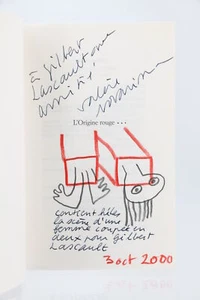 à Gilbert
Lascault mon
amitié,
Valère
Novarina
L'Origine rouge...
contient hélas
la scène d'une
femme coupée en
deux pour Gilbert
Lascault
3 oct 2000